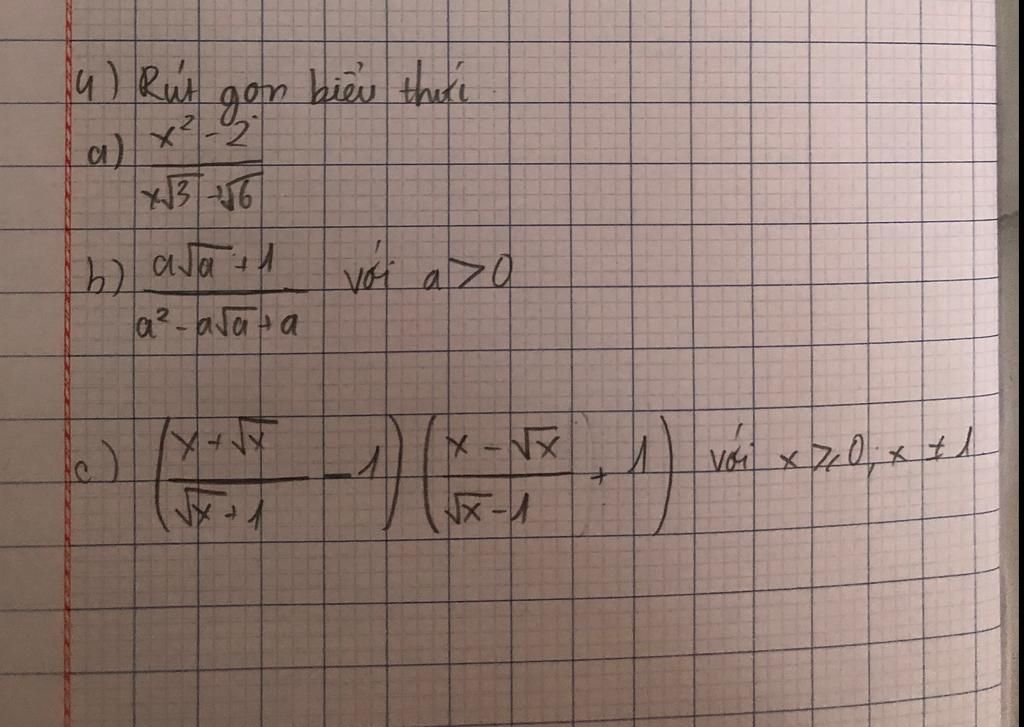 4) Rút gọn biểu thức
a) \frac{x² - 2}{x√3 - √6}
b) \frac{a√a + 1}{a² - a√a + a} với a > 0
c) (\frac{x + √x}{√x + 1} - 1)(\frac{x - √x}{√x - 1} + 1) với x ≥ 0; x ≠ 1